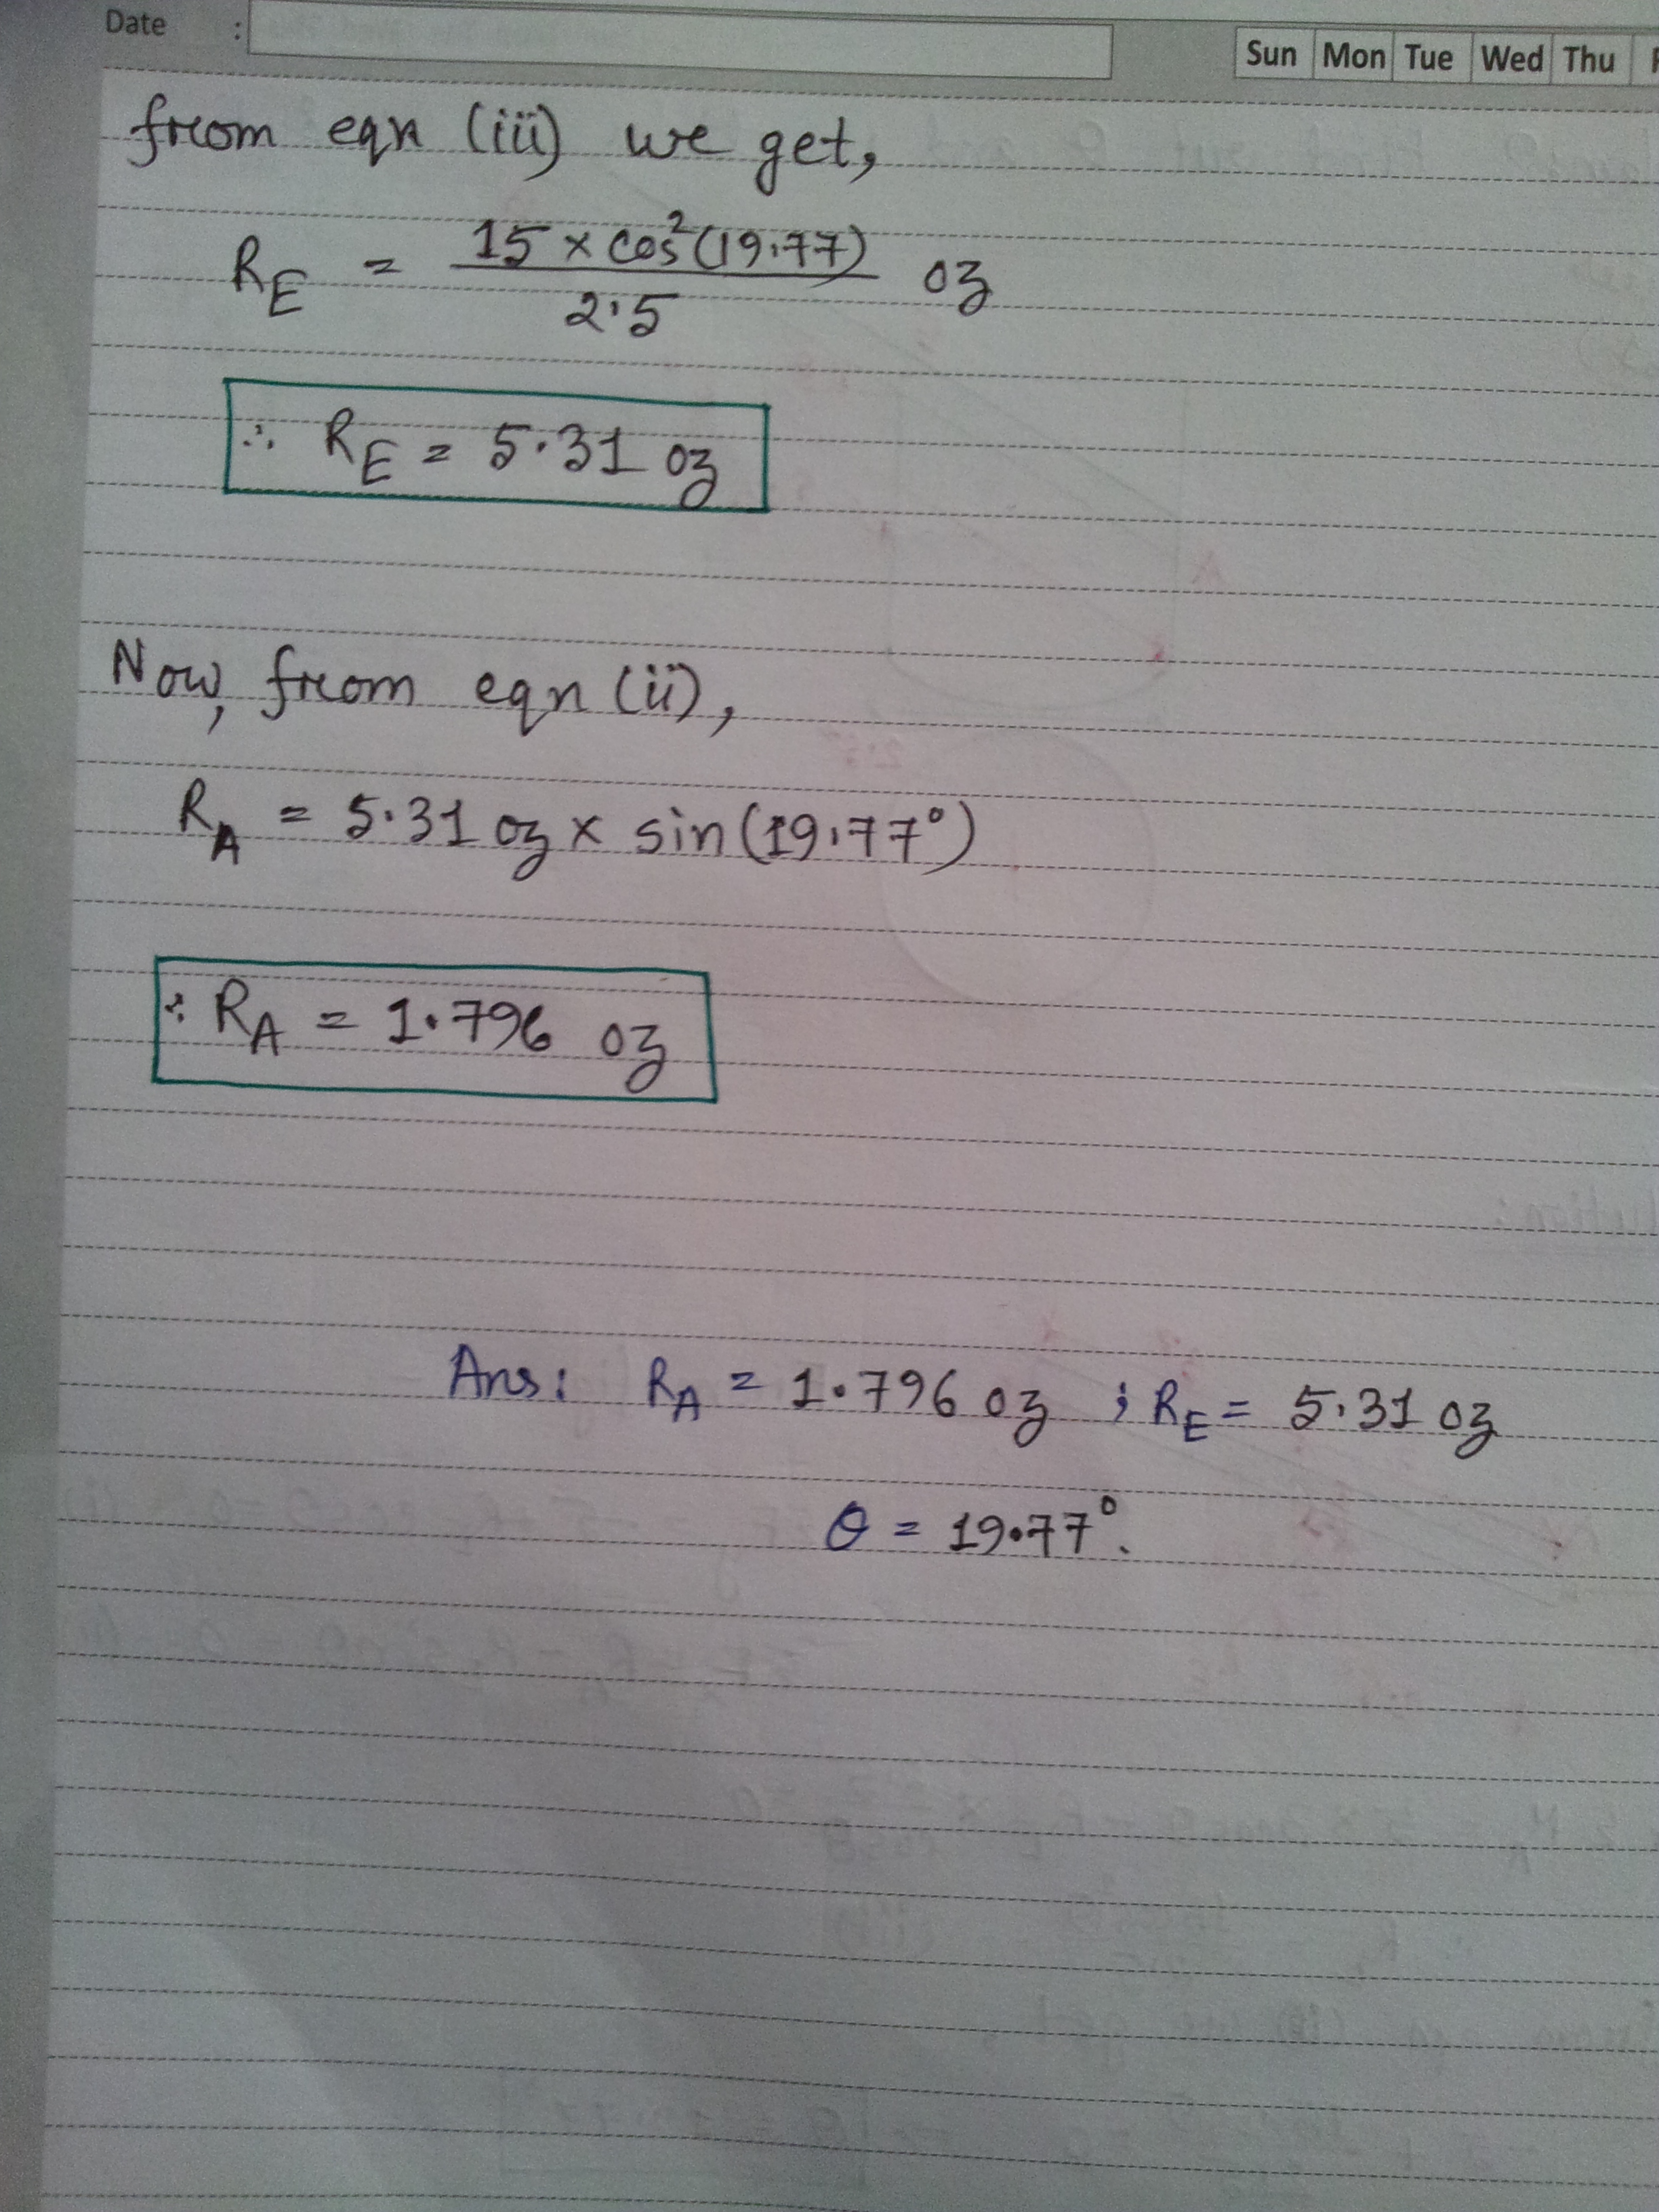 Date :
Sun Mon Tue Wed Thu
from eqn (iii) we get,
R_E = 15 × cos²(19.77) / 2.5 oz
∴ R_E = 5.31 oz
Now, from eqn (ii),
R_A = 5.31 oz × sin(19.77°)
∴ R_A = 1.796 oz
Ans: R_A = 1.796 oz ; R_E = 5.31 oz
θ = 19.77°.